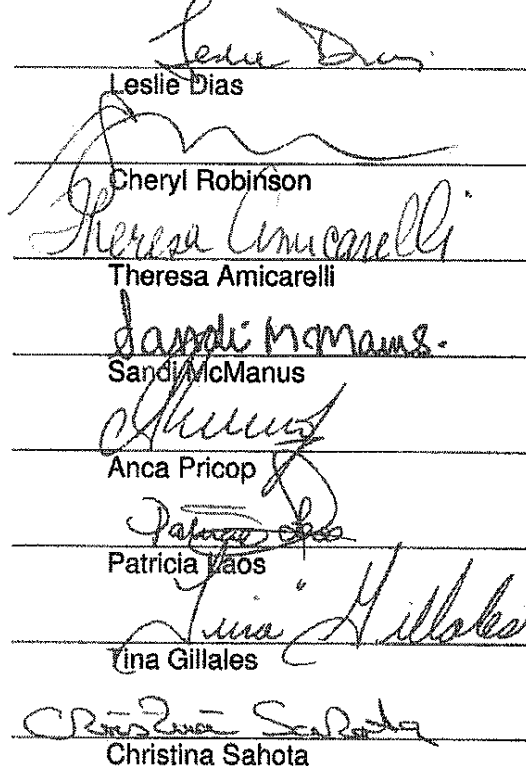 Leslie Dias
Leslie Dias
Cheryl Robinson
Theresa Amicarelli
Theresa Amicarelli
Sandi McManus.
Sandi McManus
Anca Pricop
Patricia Laos
Patricia Laos
Tina Gillales
Tina Gillales
Christina Sahota
Christina Sahota